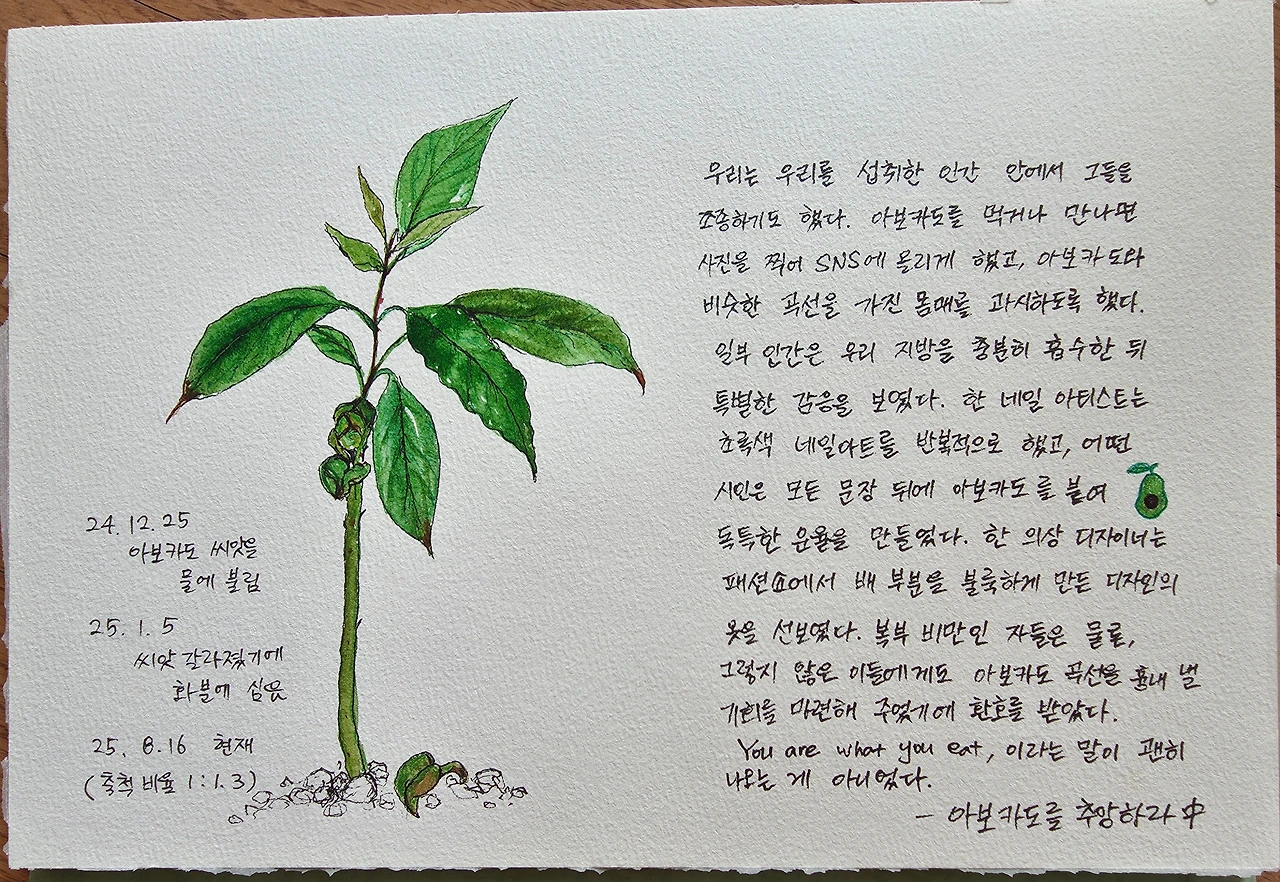 24.12.25
아보카도 씨앗을
물에 불림
25.1.5
씨앗 갈라졌기에
화분에 심음
25. 8.16 현재
(축척 비율 1:1.3)
우리는 우리를 섭취한 인간 안에서 그들을
조종하기도 했다. 아보카도를 먹거나 만나면
사진을 찍어 SNS에 올리게 했고, 아보카도와
비슷한 곡선을 가진 몸매를 과시하도록 했다.
일부 인간은 우리 지방을 충분히 흡수한 뒤
특별한 감응을 보였다. 한 네일 아티스트는
초록색 네일아트를 반복적으로 했고, 어떤
시인은 모든 문장 뒤에 아보카도를 붙여
독특한 운율을 만들었다. 한 의상 디자이너는
패션쇼에서 배 부분을 불룩하게 만든 디자인의
옷을 선보였다. 복부 비만인 자들은 물론,
그렇지 않은 이들에게도 아보카도 곡선을 흉내 낼
기회를 마련해 주었기에 환호를 받았다.
You are what you eat, 이라는 말이 괜히
나오는 게 아니었다.
- 아보카도를 추앙하라 中